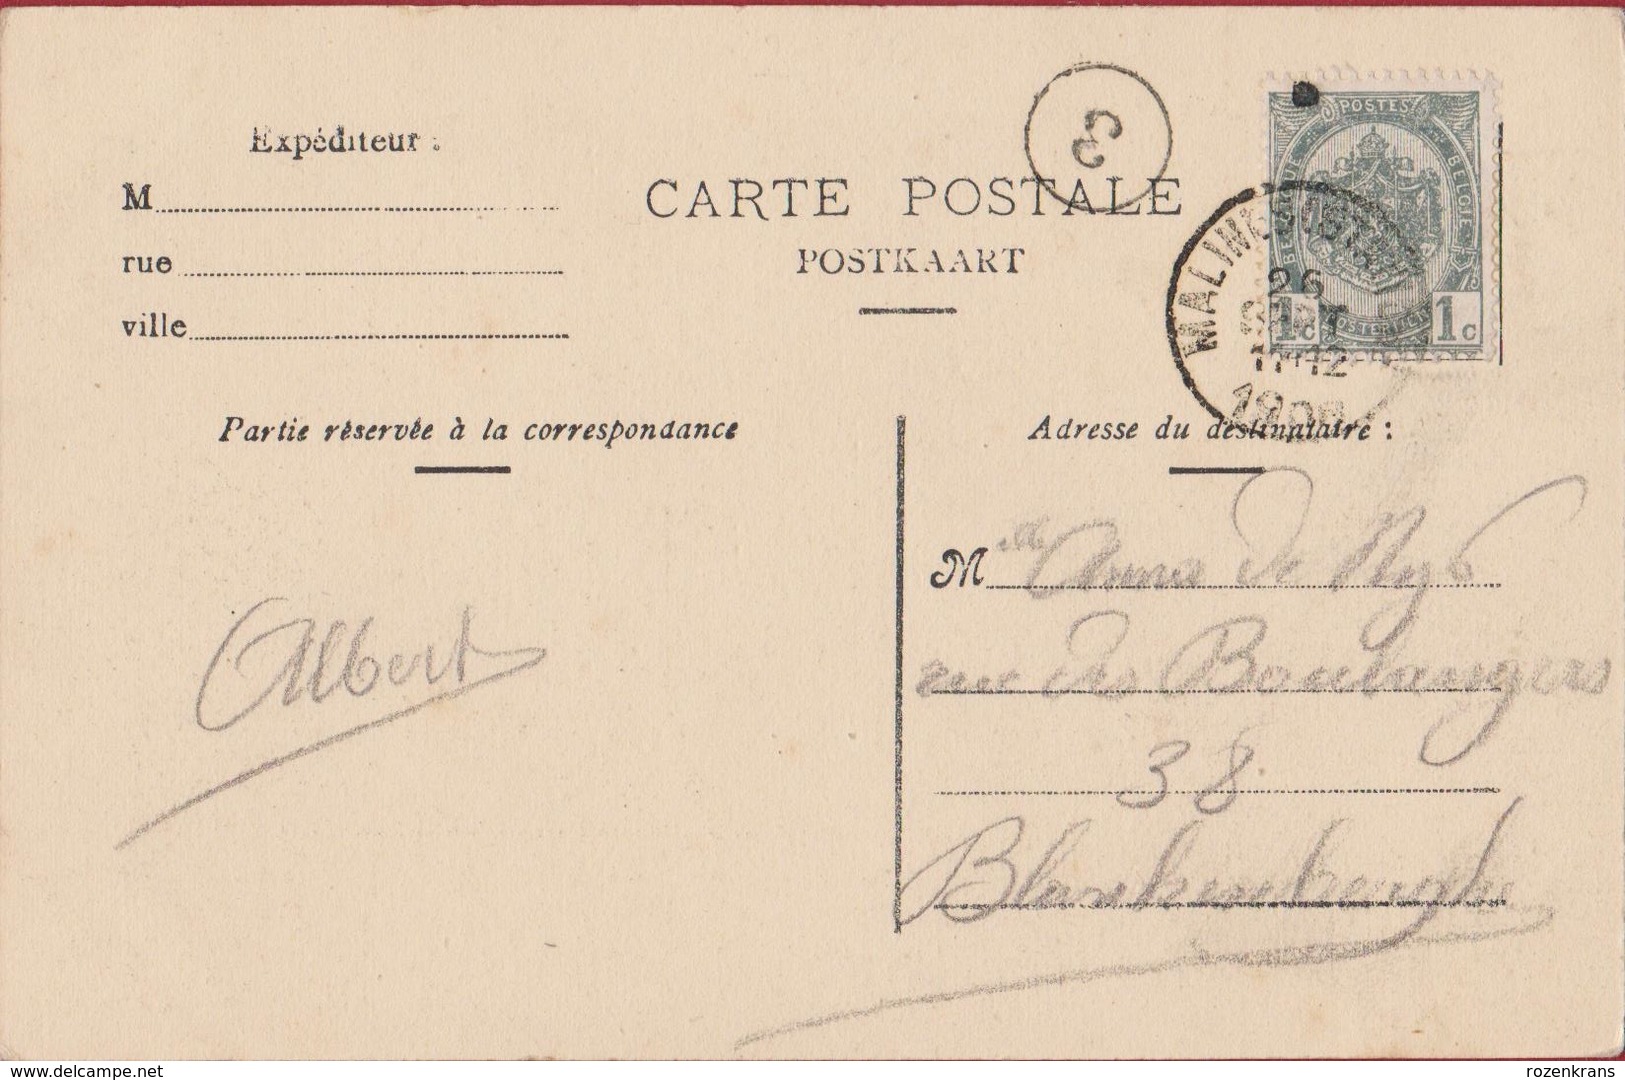 Expéditeur :
M
rue
ville
CARTE POSTALE
POSTKAART
3
POSTES
BELGIQUE
BELGIE
1c
1c
MALINES (STATION)
26
SEPT
11-12
Partie réservée à la correspondance
Adresse du destinataire :
Albert
Melle Anna De Nys
rue des Boulangers
38.
Blankenberghe
delcampe.net
rozenkrans